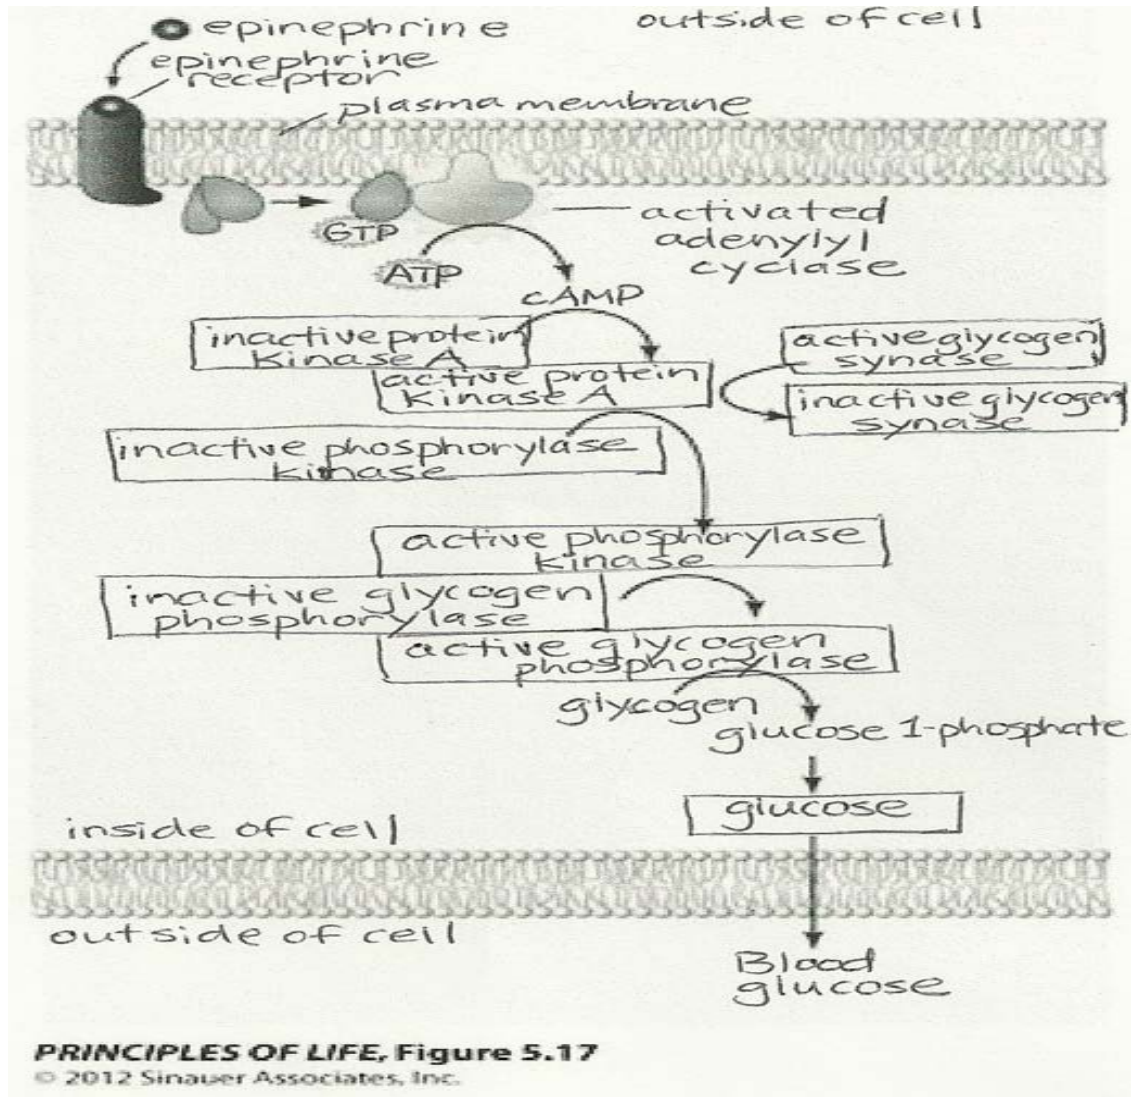 epinephrine
outside of cell
epinephrine
receptor
plasma membrane
GTP
activated
adenylyl
cyclase
ATP
cAMP
inactive protein
kinase A
active glycogen
synase
active protein
kinase A
inactive glycogen
synase
inactive phosphorylase
kinase
active phosphorylase
kinase
inactive glycogen
phosphorylase
active glycogen
phosphorylase
glycogen
glucose 1-phosphate
glucose
inside of cell
outside of cell
Blood
glucose
PRINCIPLES OF LIFE, Figure 5.17
© 2012 Sinauer Associates, Inc.